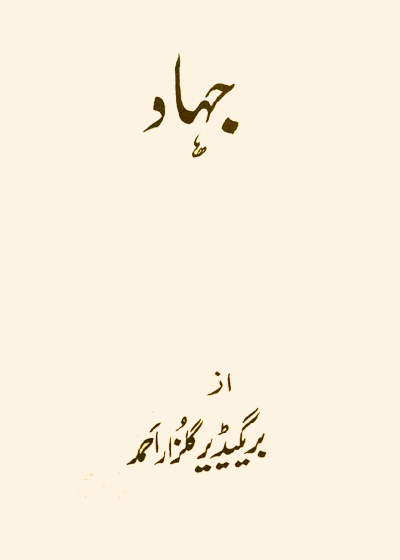 جہاد
از
بریگیڈیر گلزار احمد